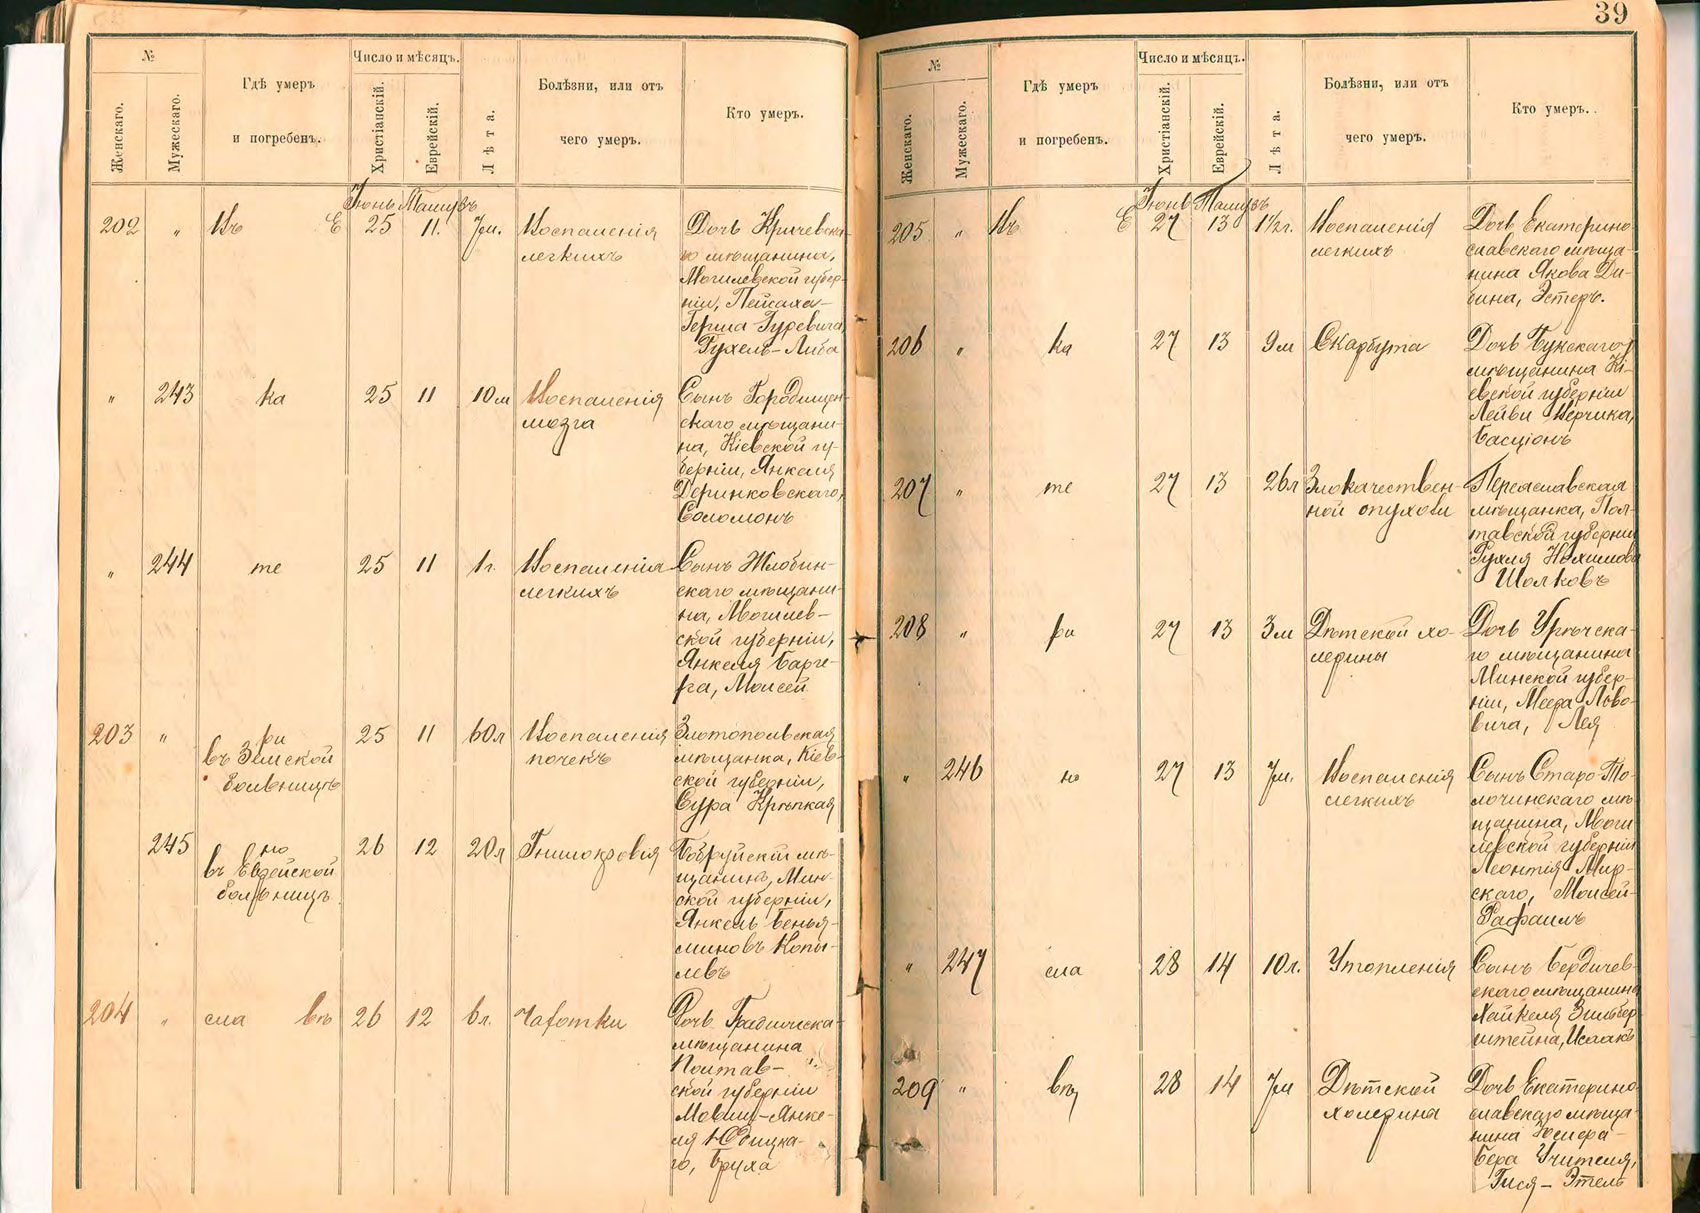 39
№
Число и мѣсяцъ.
Женскаго.
Мужескаго.
Гдѣ умеръ
и погребенъ.
Христіанскій.
Еврейскій.
Лѣта.
Болѣзни, или отъ
чего умеръ.
Кто умеръ.
Іюнь Тамузъ
202 " Въ Е 25 11. 7м. Воспаленія
легкихъ
Дочь Кричевска-
го мѣщанина,
Могилевской губер-
ніи, Пейсаха-
Герша Гуревича,
Рухель-Либа
" 243 ка 25 11 10м Воспаленія
мозга
Сынъ Городищен-
скаго мѣщани-
на, Кіевской гу-
берніи, Янкеля
Деринковскаго,
Соломонъ
" 244 те 25 11 1г. Воспаленія
легкихъ
Сынъ Жлобин-
скаго мѣщани-
на, Могилев-
ской губерніи,
Янкеля
Моисей
203 " ри 25 11 60л Воспаленія
въ Земской
больницѣ
почекъ
Златопольская
мѣщанка, Кіев-
ской губерніи,
Сура Крѣпкая
245 но 26 12 20л Гнилокровія
въ Еврейской
больницѣ
Бобруйскій мѣ-
щанинъ, Мин-
ской губерніи,
Янкель Бенья-
миновъ Копы-
левъ
204 " сла въ 26 12 6л. Чахотки
Дочь Градижска-
мѣщанина
Полтав-
ской губерніи
Мовши-Янке-
ля Юдицка-
го, Бруха
№
Число и мѣсяцъ.
Женскаго.
Мужескаго.
Гдѣ умеръ
и погребенъ.
Христіанскій.
Еврейскій.
Лѣта.
Болѣзни, или отъ
чего умеръ.
Кто умеръ.
Іюнь Тамузъ
205 " Въ Е 27 13 1½г. Воспаленія
легкихъ
Дочь Екатерино-
славскаго мѣща-
нина Якова Ди-
бина, Эстеръ.
206 " ка 27 13 9м Скарбута
Дочь Букскаго
мѣщанина Кі-
евской губерніи
Лейви Верчика,
Басціонъ
207 " те 27 13 26л Злокачествен-
ной опухоли
Переяславская
мѣщанка, Пол-
тавской губерніи
Рухля Нохимова
Шолковъ
208 " ри 27 13 3м Дѣтской хо-
лерины
Дочь Урѣчска-
го мѣщанина
Минской губер-
ніи, Меера Льво-
вича, Лея
" 246 но 27 13 7м. Воспаленія
легкихъ
Сынъ Старо-То-
лочинскаго мѣ-
щанина, Моги
левской губерніи
Леонтія Мир-
скаго, Моисей-
Рафаилъ
" 247 сла 28 14 10л. Утопленія
Сынъ Бердичев-
скаго мѣщанина
Хайкеля Зильбер
штейна, Исаакъ
209 " въ, 28 14 7м Дѣтской
холерина
Дочь Екатерино-
славскаго мѣща-
нина
Бера Учителя,
Гися-Этель